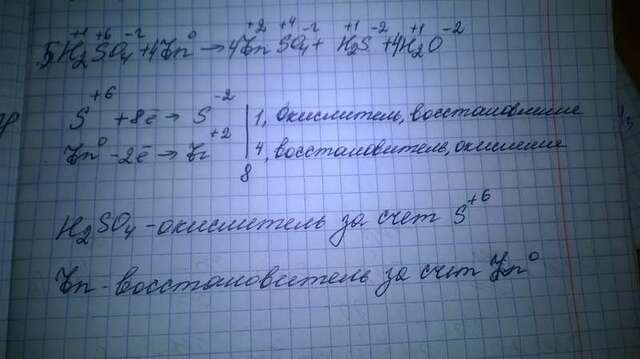 +1 +6 -2 0 +2 +4 -2 +1 -2 +1 -2
5H₂SO₄+4Zn→4ZnSO₄+H₂S+4H₂O
S⁺⁶+8ē→S⁻² | 1, окислитель, восстановление
Zn⁰-2ē→Zn⁺² | 4, восстановитель, окисление
8
H₂SO₄-окислитель за счет S⁺⁶
Zn-восстановитель за счет Zn⁰